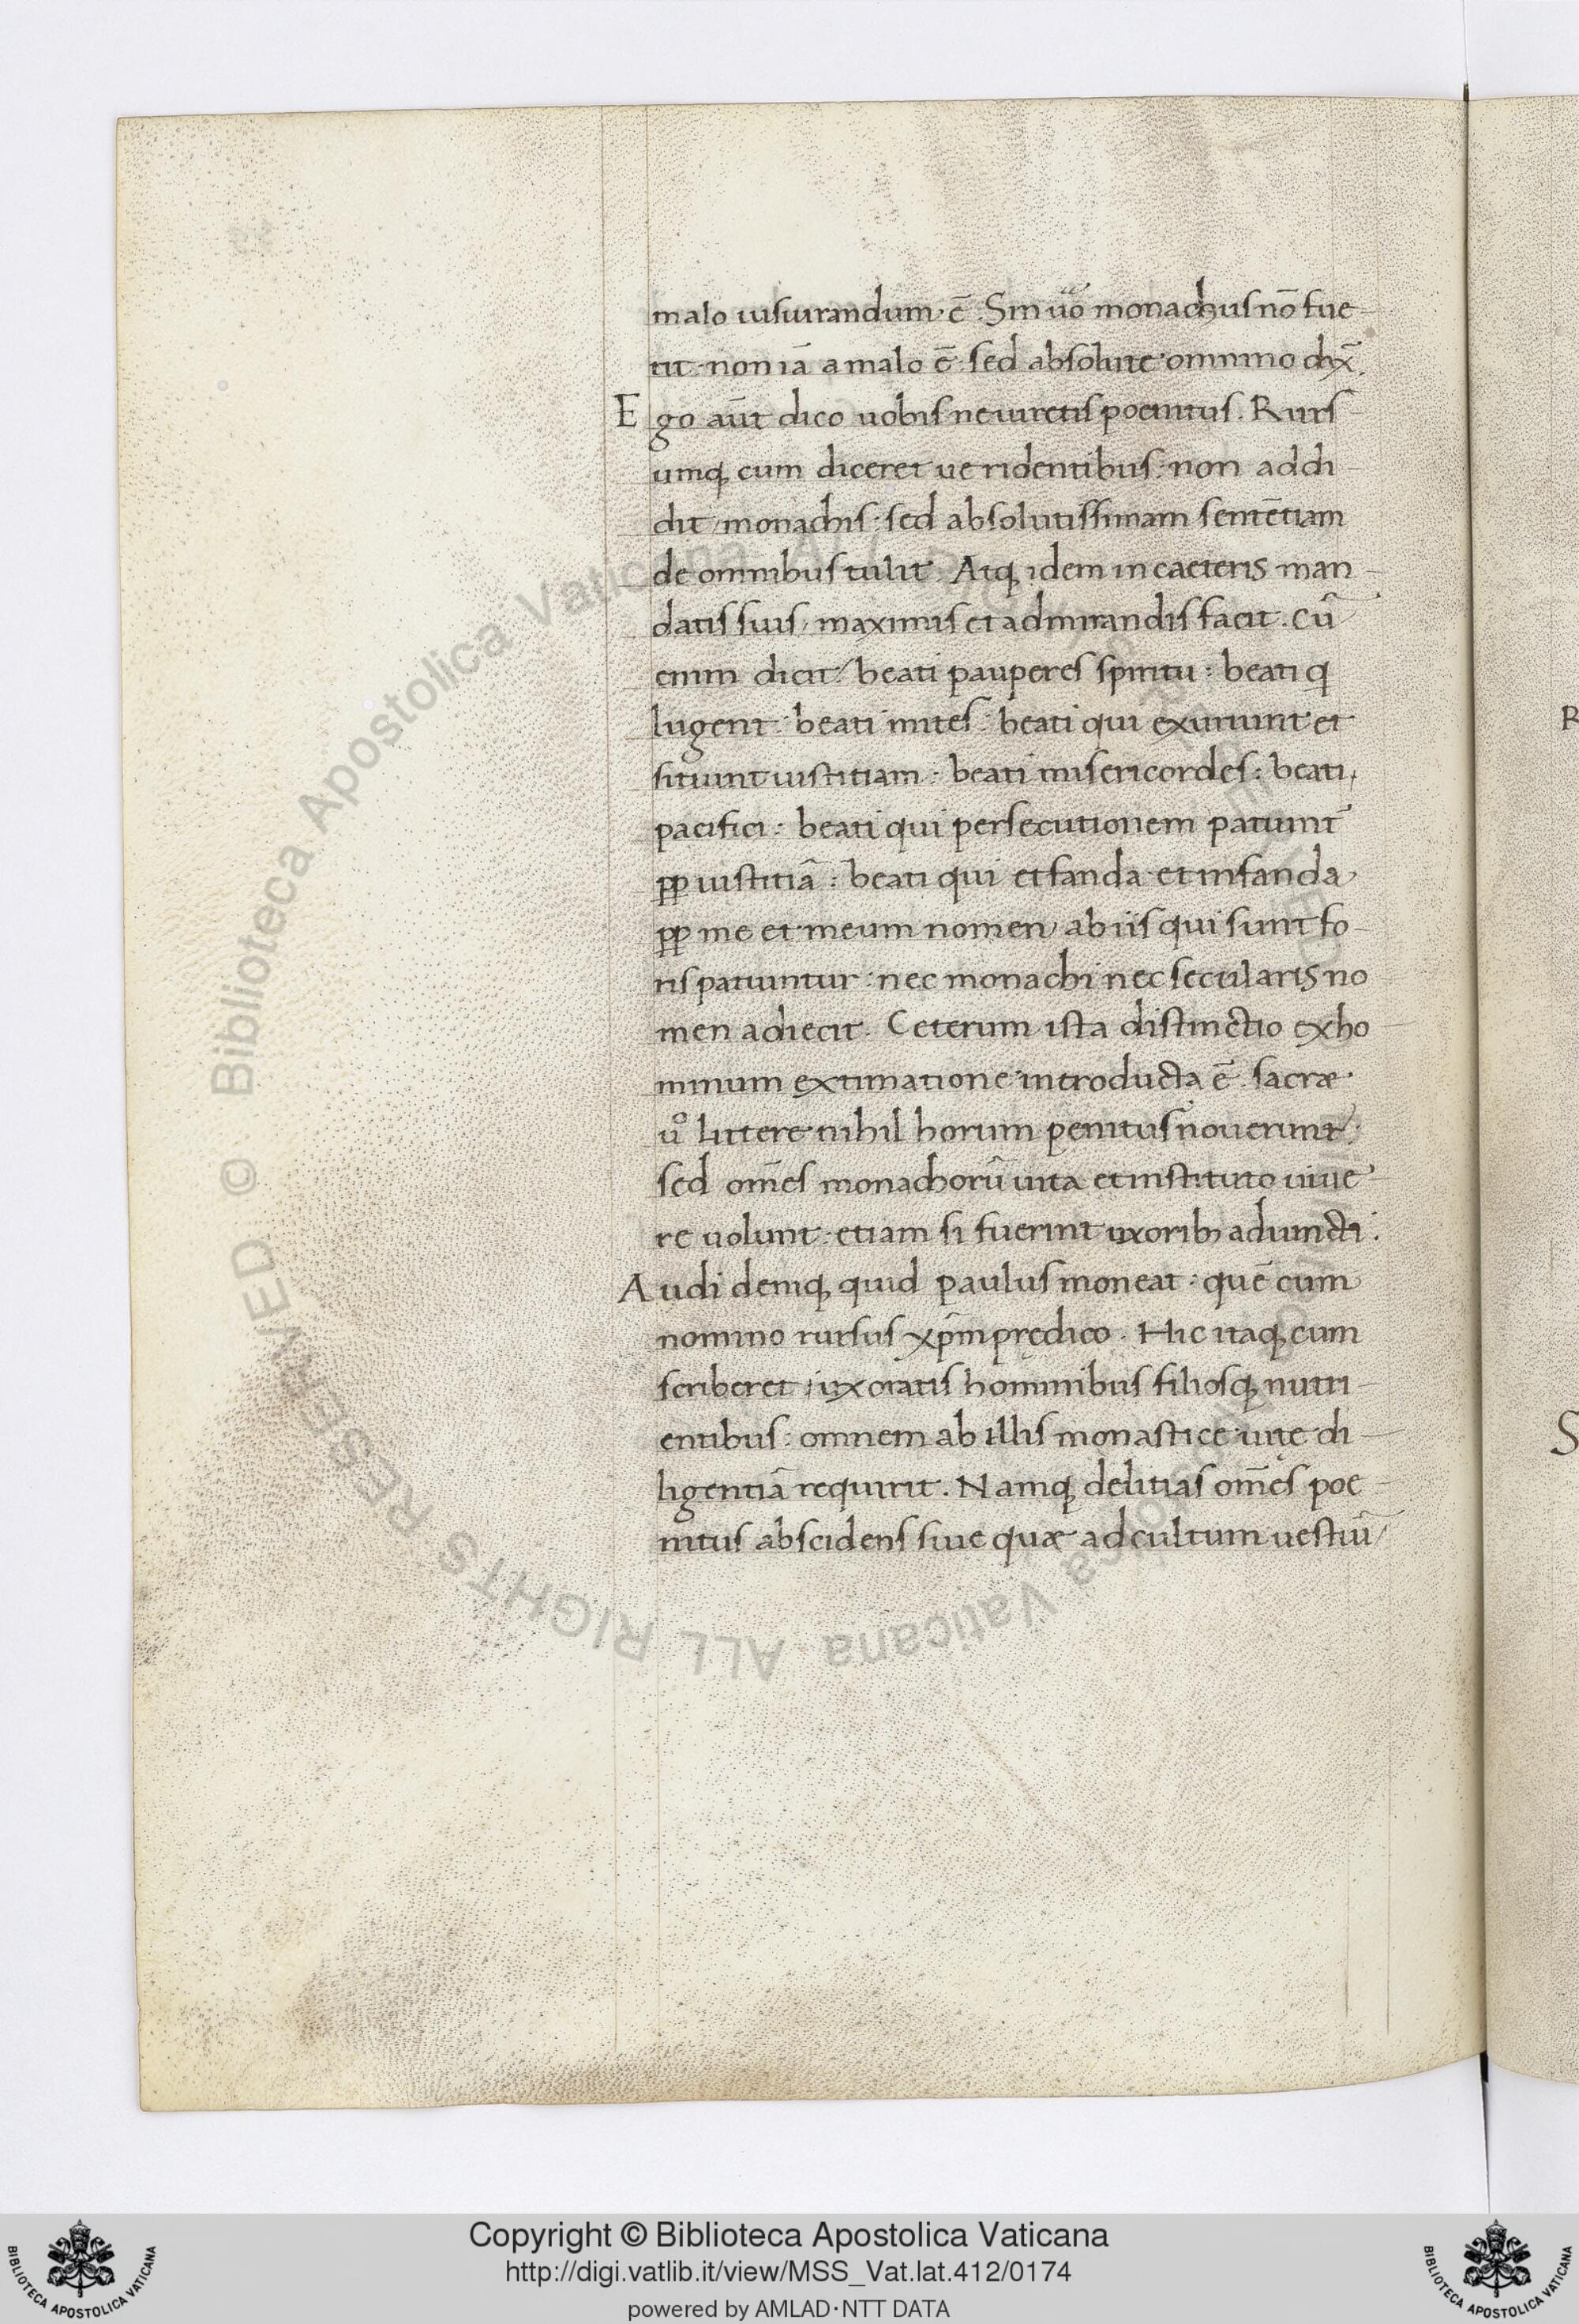 malo iusiurandum ē. Sin uō monachus nō fue-
rit: non iā a malo ē: sed absolute omnino dix̄.
Ego aūt dico uobis ne iuretis poenitus. Rurs
umq; cum diceret ue ridentibus: non addi-
dit monachis: sed absolutissimam sentētiam
de omnibus tulit. Atq; idem in caeteris man-
datis suis, maximis et admirandis facit. Cū
enim dicit, beati pauperes spiritu: beati q
lugent: beati mites: beati qui exuriunt et
sitiunt iustitiam: beati misericordes: beati
pacifici: beati qui persecutionem patiunt̄
pp iustitiā: beati qui et fanda et infanda
pp me et meum nomen, ab iis qui sunt fo-
ris patiuntur: nec monachi nec secularis no
men adiecit. Ceterum ista distinctio ex ho-
minum extimatione introducta ē. sacræ
uº littere nihil horum penitus nouerunt:
sed om̄es monachorū uita et instituto uiue-
re uolunt: etiam si fuerint uxorib; adiuncti:
Audi deniq; quid paulus moneat: quē cum
nomino rursus xp̄m prędico. Hic itaq; cum
scriberet, uxoratis hominibus filiosq; nutri
entibus: omnem ab illis monastice uitę di-
ligentiā requirit. Namq; delitias om̄es poe-
nitus abscidens siue quæ ad cultum uestiū
R
S
Biblioteca Apostolica Vaticana ALL RIGHTS RESERVED ©
Copyright © Biblioteca Apostolica Vaticana
http://digi.vatlib.it/view/MSS_Vat.lat.412/0174
powered by AMLAD·NTT DATA
BIBLIOTECA APOSTOLICA VATICANA
BIBLIOTECA APOSTOLICA VATICANA